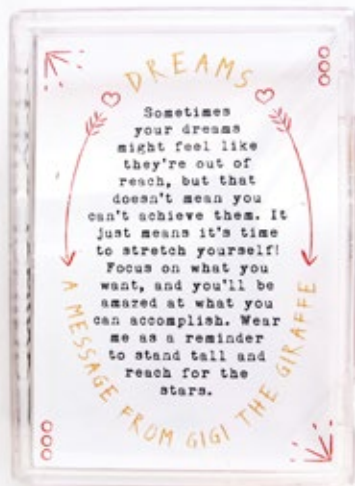 DREAMS
Sometimes
your dreams
might feel like
they're out of
reach, but that
doesn't mean you
can't achieve them. It
just means it's time
to stretch yourself!
Focus on what you
want, and you'll be
amazed at what you
can accomplish. Wear
me as a reminder
to stand tall and
reach for the
stars.
A MESSAGE FROM GIGI THE GIRAFFE